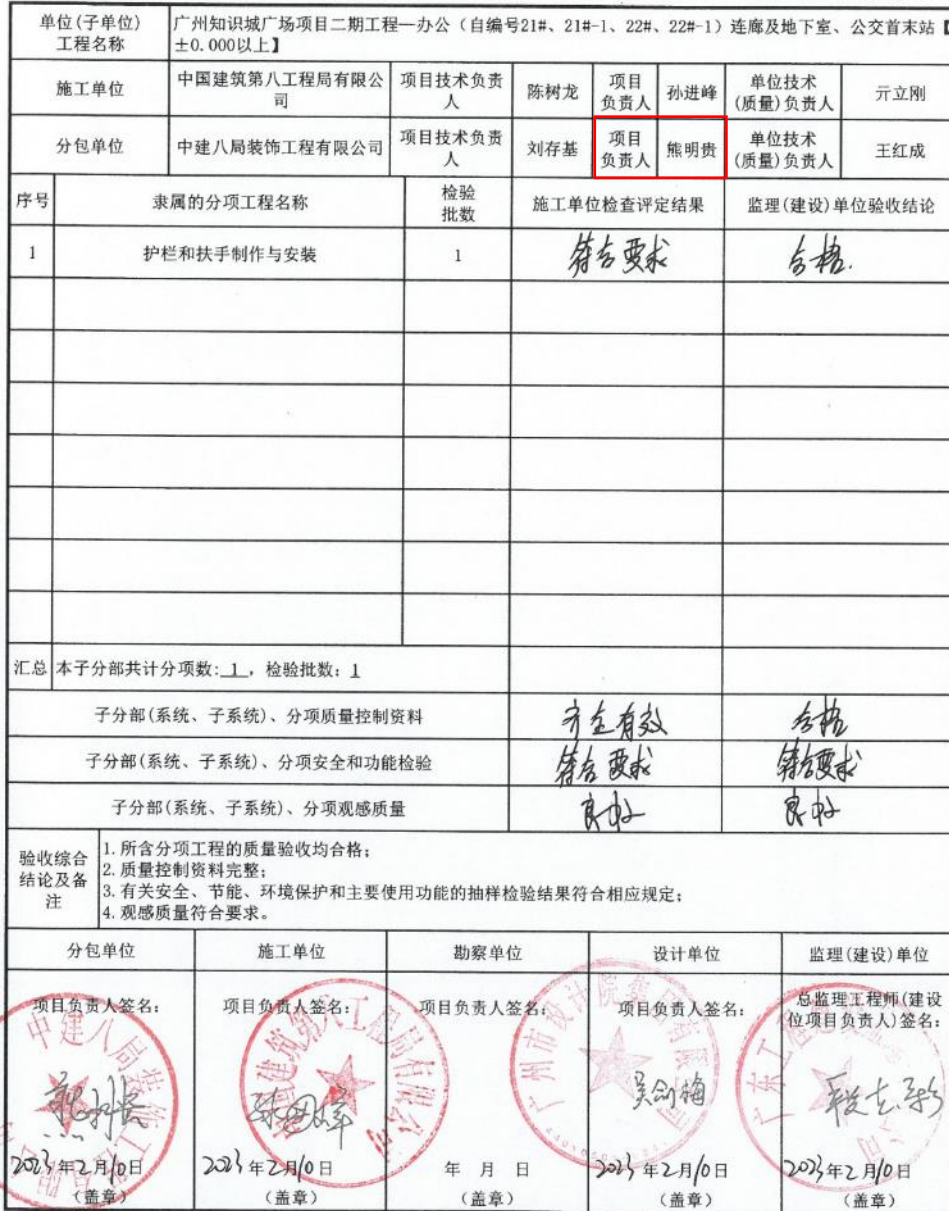 单位(子单位)
工程名称
广州知识城广场项目二期工程—办公（自编号21#、21#-1、22#、22#-1）连廊及地下室、公交首末站【
±0.000以上】
施工单位
中国建筑第八工程局有限公
司
项目技术负责
人
陈树龙
项目
负责人
孙进峰
单位技术
(质量)负责人
亓立刚
分包单位
中建八局装饰工程有限公司
项目技术负责
人
刘存基
项目
负责人
熊明贵
单位技术
(质量)负责人
王红成
序号
隶属的分项工程名称
检验
批数
施工单位检查评定结果
监理(建设)单位验收结论
1
护栏和扶手制作与安装
1
符合要求
合格.
汇总
本子分部共计分项数: 1 ，检验批数: 1
子分部(系统、子系统)、分项质量控制资料
齐全有效
合格
子分部(系统、子系统)、分项安全和功能检验
符合要求
符合要求
子分部(系统、子系统)、分项观感质量
良好
良好
验收综合
结论及备
注
1. 所含分项工程的质量验收均合格；
2. 质量控制资料完整；
3. 有关安全、节能、环境保护和主要使用功能的抽样检验结果符合相应规定；
4. 观感质量符合要求。
分包单位
施工单位
勘察单位
设计单位
监理(建设)单位
项目负责人签名：
项目负责人签名：
项目负责人签名：
项目负责人签名：
总监理工程师(建设
位项目负责人)签名：
吴剑梅
2023年2月10日
2023年2月10日
年 月 日
2023年2月10日
2023年2月10日
（盖章）
（盖章）
（盖章）
（盖章）
（盖章）